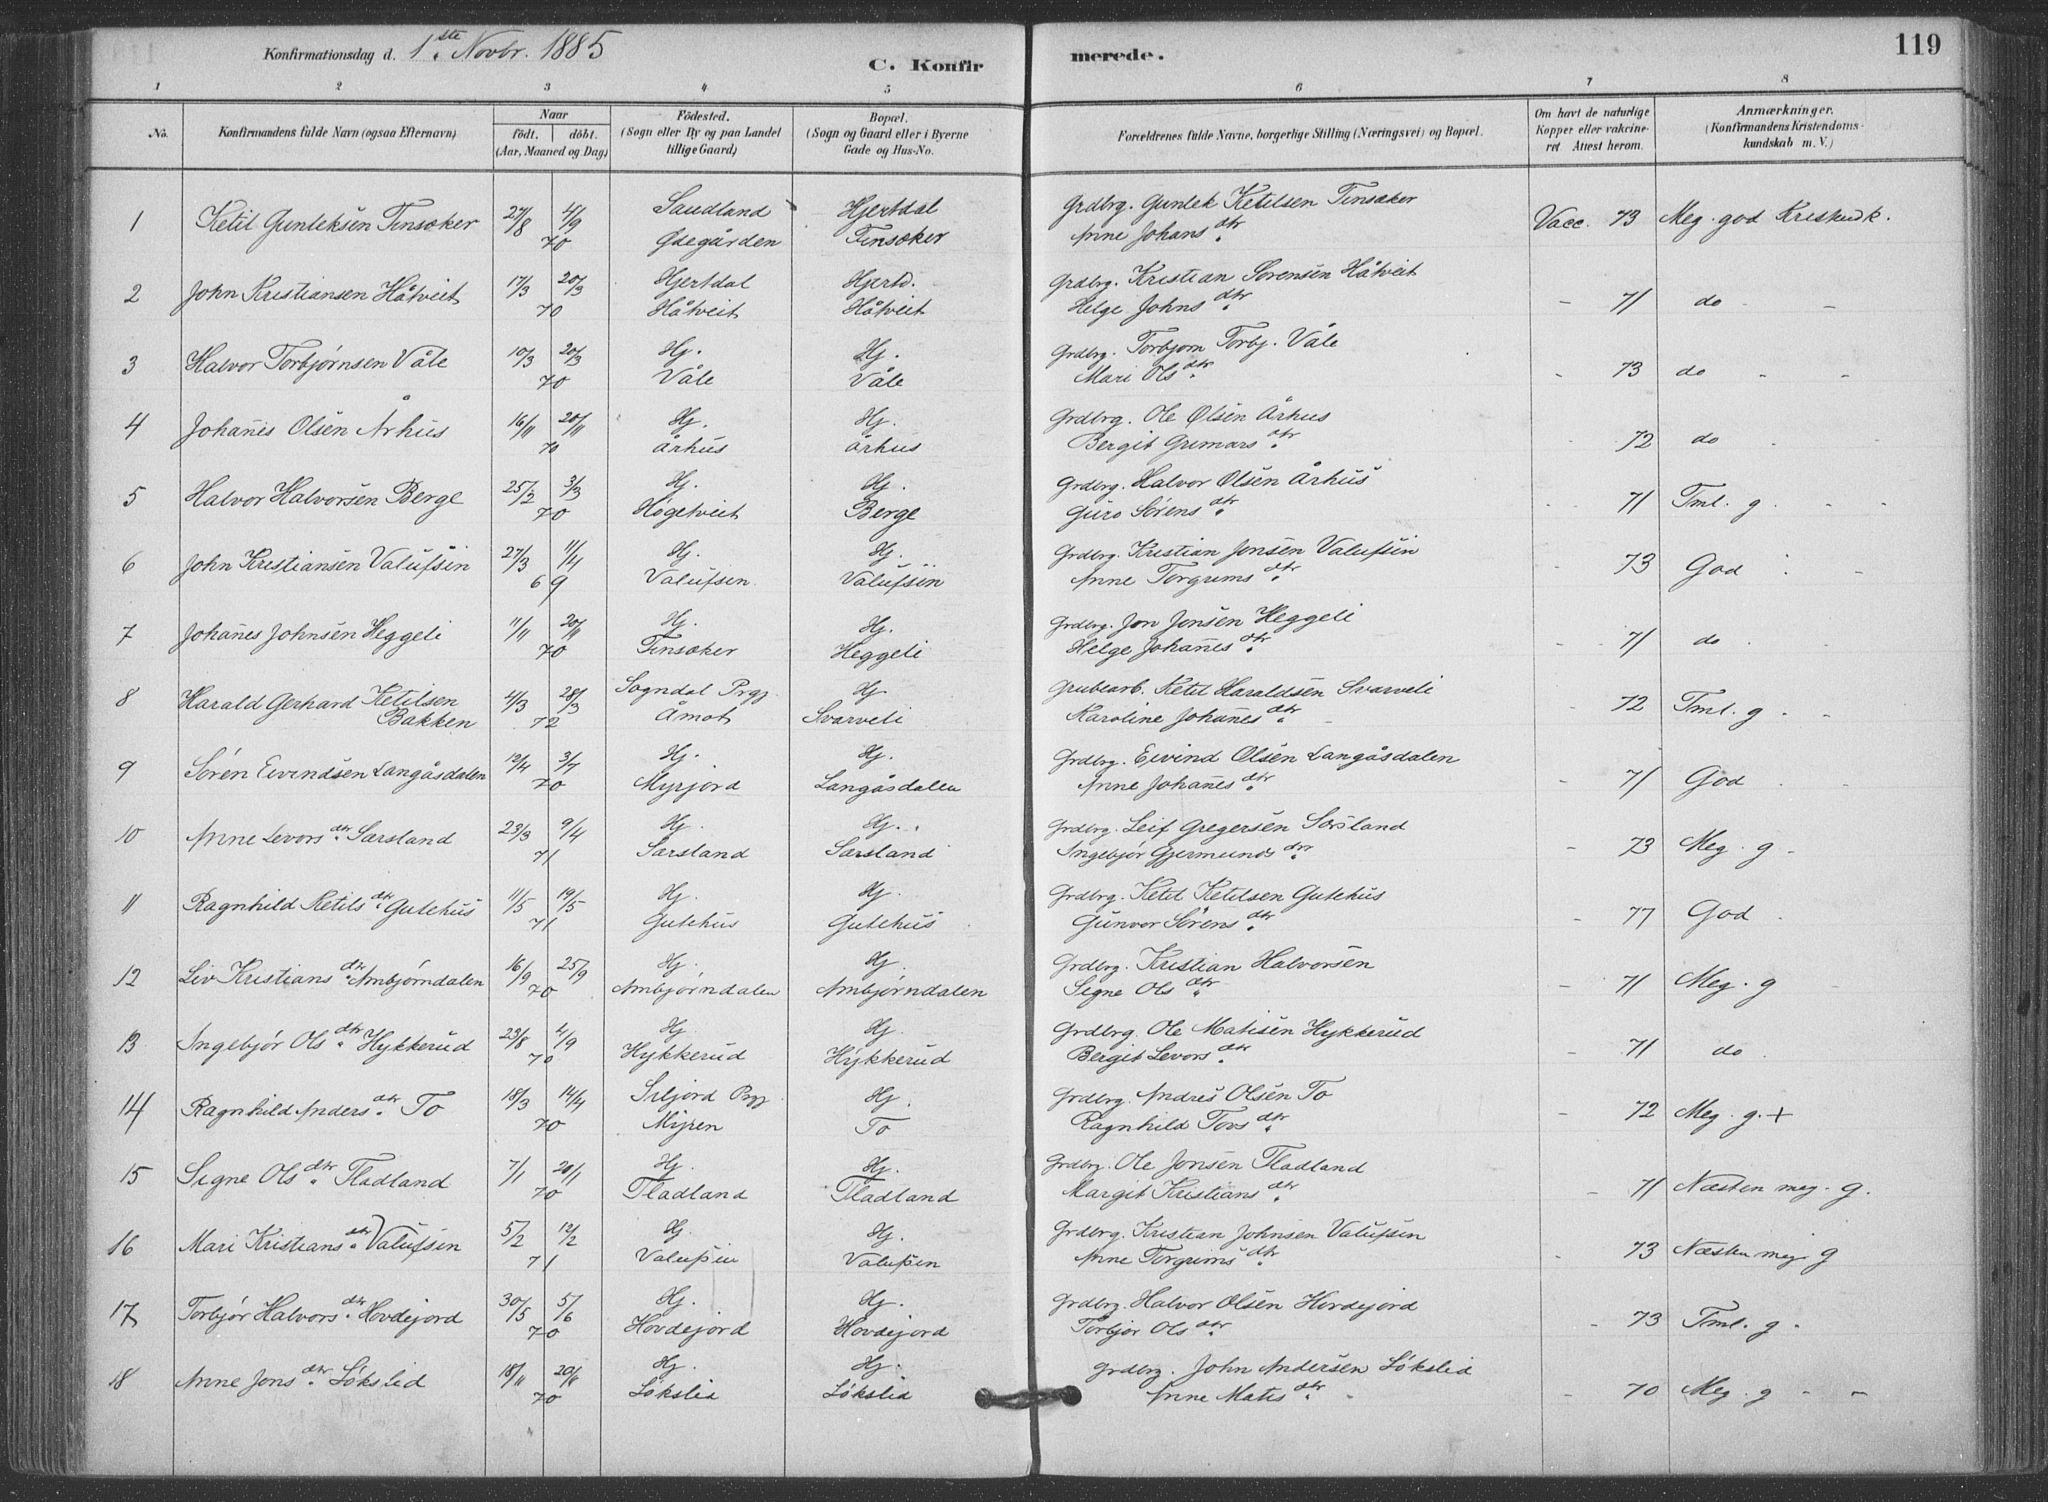 Konfirmationsdag d. 1.ste Novbr. 1885
C. Konfirmerede.
119
1 2 3 4 5 6 7 8
No.
Konfirmandens fulde Navn (ogsaa Efternavn)
Naar
født. døbt.
(Aar, Maaned og Dag)
Fødested.
(Sogn eller By og paa Landet tillige Gaard)
Bopæl.
(Sogn og Gaard eller i Byerne Gade og Hus-No.
Forældrenes fulde Navne, borgerlige Stilling (Næringsvei) og Bopæl.
Om havt de naturlige Kopper eller vakcineret Attest herom.
Anmærkninger.
(Konfirmandens Kristendomskundskab m. V.)
1 Ketil Gunleksen Tinsæker 27/8 4/9 70 Saudland Ødegården Hjertdal Tinsæker Grdbrg. Gunlek Ketilsen Tinsæker Anne Johans dtr. Vacc. 73 Meg. god Kristendk.
2 John Kristiansen Håtveit 17/3 20/3 70 Hjertdal Håtveit Hjertd. Håtveit Grdbrg. Kristian Sørensen Håtveit Helge Johns dtr. - 71 do - -
3 Halvor Torbjørnsen Våle 10/3 20/3 70 Hj. Våle Hj. Våle Grdbrg. Torbjørn Torbj. Våle Mari Ols dtr. - 73 do - -
4 Johan̄es Olsen Århus 16/11 20/11 70 Hj. Århus Hj. Århus Grdbrg. Ole Olsen Århus Bergit Gunnars dtr. - 72 do - -
5 Halvor Halvorsen Berge 25/2 3/3 70 Hj. Høgetveit Hj. Berge Grdbrg. Halvor Olsen Århus Guro Sørens dtr. - 71 Tml. g. - -
6 John Kristiansen Valufsin 27/3 11/4 69 Hj. Valufsin Hj. Valufsin Grdbrg. Kristian Jonsen Valufsin Anne Torgrims dtr. - 73 God - -
7 Johan̄es Johnsen Heggeli 11/11 20/11 70 Hj. Tinsæker Hj. Heggeli Grdbrg. Jon Jonsen Heggeli Helge Johan̄es dtr. - 71 do - -
8 Harald Gerhard Ketilsen Bakken 4/3 28/3 72 Sogndal Prgj. Åmot Hj Svarveli Grubearb. Ketil Haraldsen Svarveli Karoline Johan̄es dtr. - 72 Tml. g - -
9 Søren Eivindsen Langåsdalen 12/4 3/7 70 Hj. Myrjord Hj. Langåsdalen Grdbrg. Eivind Olsen Langåsdalen Anne Johan̄es dtr. - 71 God - -
10 Anne Levors dtr. Sarsland 23/3 9/4 71 Hj. Sarsland Hj. Sarsland Grdbrg. Leif Gregersen Sarsland Ingebjør Gjermunds dtr. - 73 Meg. g -
11 Ragnhild Ketils dtr. Gutehus 11/5 19/5 71 Hj. Gutehus Hj. Gutehus Grdbrg. Ketil Ketilsen Gutehus Gunvor Sørens dtr. - 77 God -
12 Liv Kristians dtr. Ambjørndalen 16/9 25/9 70 Hj. Ambjørndalen Hj. Ambjørndalen Grdbrg. Kristian Halvorsen Signe Ols dtr. - 71 Meg. g -
13 Ingebjør Ols dtr. Hykkerud 23/8 4/9 70 Hj. Hykkerud Hj. Hykkerud Grdbrg. Ole Matisen Hykkerud Bergit Levors dtr. - 71 do -
14 Ragnhild Anders dtr. To 18/3 14/4 70 Siljord Prgj. Myren Hj. To Grdbrg. Andres Olsen To Ragnhild Tovs dtr. - 72 Meg. g. +
15 Signe Ols dtr. Fladland 7/1 20/1 70 Hj. Fladland Hj. Fladland Grdbrg. Ole Jonsen Fladland Margit Kristians dtr. - 71 Næsten meg. g.
16 Mari Kristians dtr. Valufsin 5/2 12/2 71 Hj. Valufsin Hj. Valufsin Grdbrg. Kristian Johnsen Valufsin Anne Torgrims dtr. - 73 Næsten meg. g
17 Torbjør Halvors dtr. Hovdejord 30/5 5/6 70 Hj. Hovdejord Hj. Hovdejord Grdbrg. Halvor Olsen Hovdejord Torbjør Ols dtr. - 73 Tml. g. -
18 Anne Jons dtr. Løkslid 18/11 20/11 70 Hj. Løkslid Hj. Løkslid Grdbrg. John Andersen Løkslid Anne Matis dtr. - 70 Meg. g - -